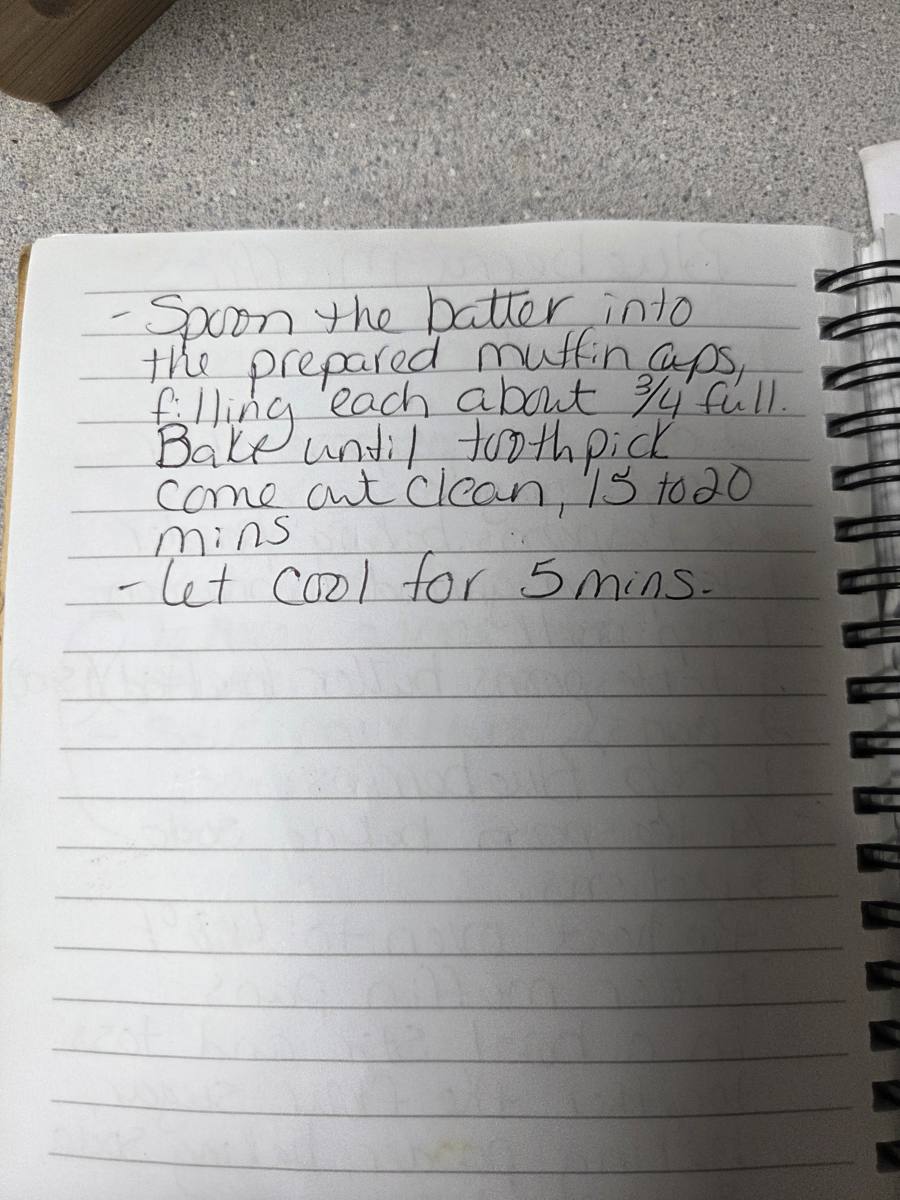 - Spoon the batter into
the prepared muffin cups,
filling each about 3/4 full.
Bake until toothpick
come out clean, 15 to 20
mins
- let cool for 5 mins.